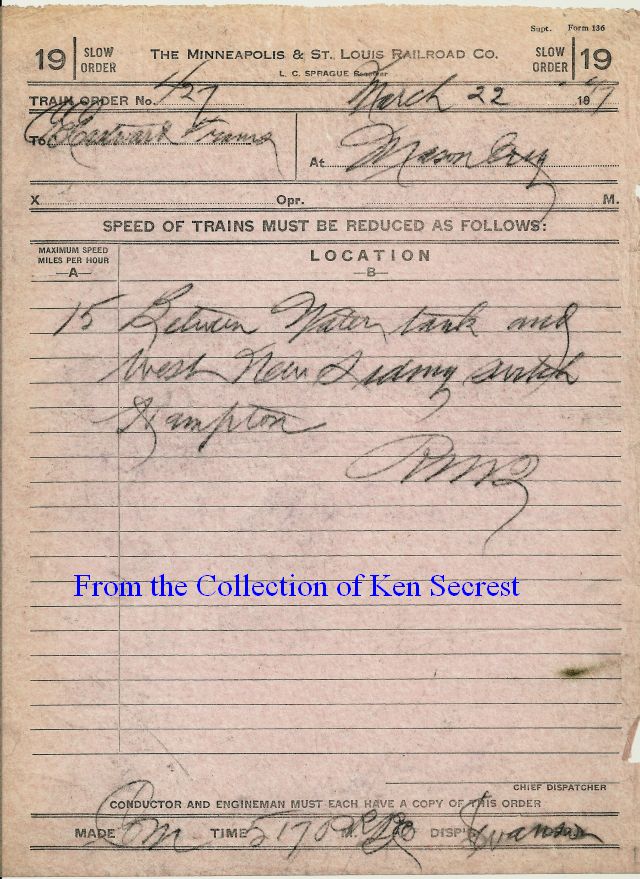 Supt. Form 136
19 SLOW ORDER THE MINNEAPOLIS & ST. LOUIS RAILROAD CO. SLOW ORDER 19
L. C. SPRAGUE Receiver
TRAIN ORDER No. 427 March 22
To Eastward Trains
At Mason City
X Opr. M.
SPEED OF TRAINS MUST BE REDUCED AS FOLLOWS:
MAXIMUM SPEED MILES PER HOUR
—A—
LOCATION
—B—
15 Between Water tank and
West New Siding switch
Hampton
From the Collection of Ken Secrest
CHIEF DISPATCHER
CONDUCTOR AND ENGINEMAN MUST EACH HAVE A COPY OF THIS ORDER
MADE Com TIME M. DISP'R Swanson